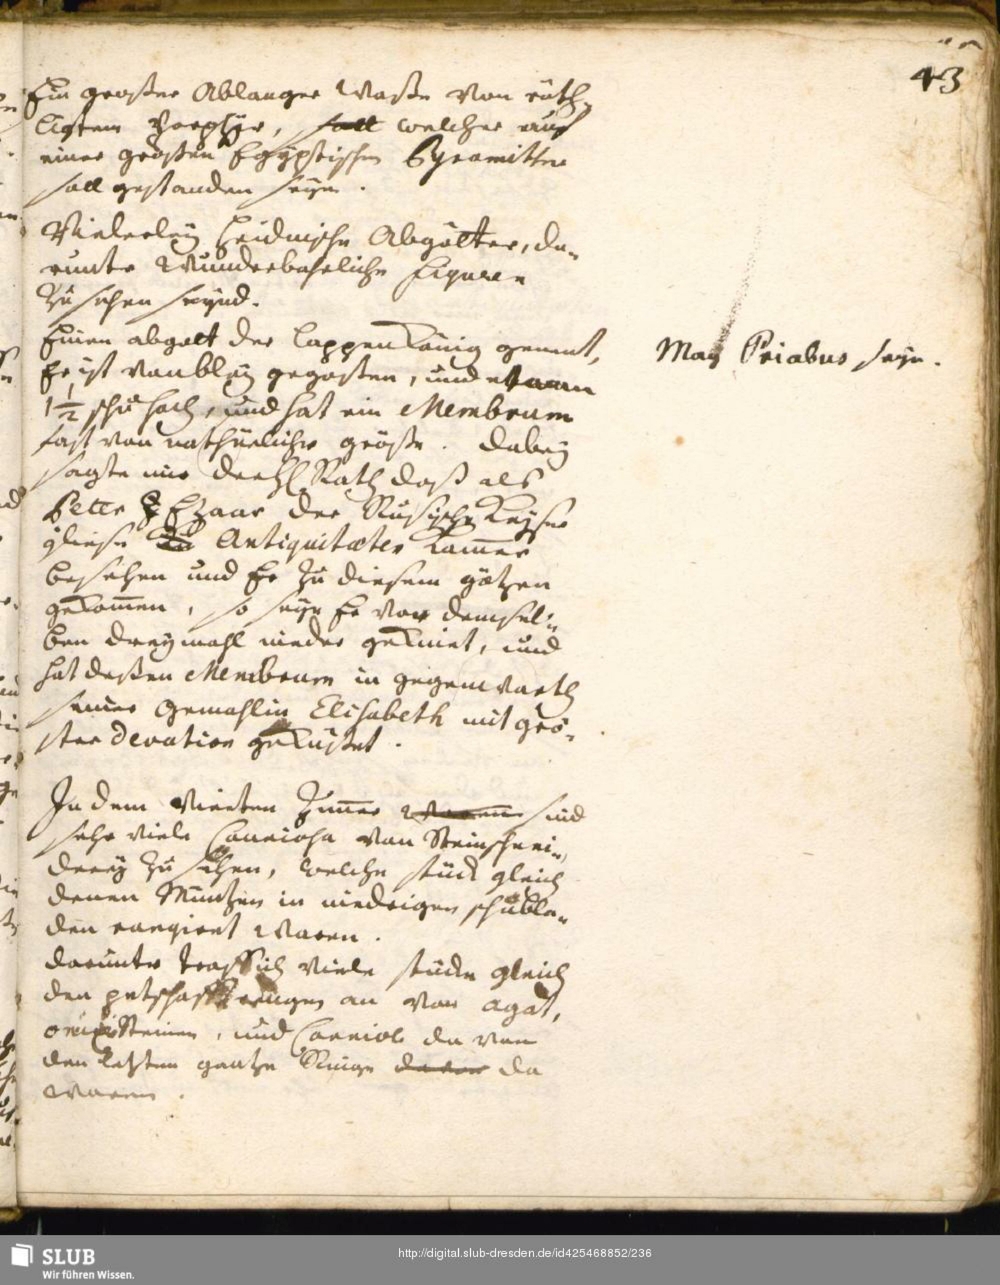 43
Ein großer Ablanger Vaße von röth,
ligten Porphyr, soll welcher auf
einer großen Egyptischen Pyramitten
soll gestanden seyn.
Vielerley Heidnische Abgötter, da,
runter Wunderbahrliche Figuren
zu sehen seynd.
Einen abgott der Lappen König genent,
Er ist von bley gegoßen, und
1½ schu hoch, und hat ein Membrum
fast von nathürlicher größe. dabey
sagte mir der H Rath daß als
Peter Czaar der Rußische Keyser
diese Antiquitaeten Kammer
besehen und Er zu diesem götzen
gekommen, so seye Er vor demsel,
ben dreymahl nieder gekniet, und
hat deßen Membrum in gegenwarth
seiner Gemahlin Elisabeth mit grö,
ster Devotion geküßet.
May Priabus seyn.
In dem Vierten Zimmer waren sind
sehr viele Curiosa von Steinschnei,
derey zu sehen, welche stück gleich
denen Müntzen in niedrigen schubla,
den rangiert waren.
darunter trefflich viele stücke gleich
den petschafft ringen an von agat,
onix Steinen, und Carniol da von
den letzten gantze Ringe da
waren.
SLUB
Wir führen Wissen.
http://digital.slub-dresden.de/id425468852/236